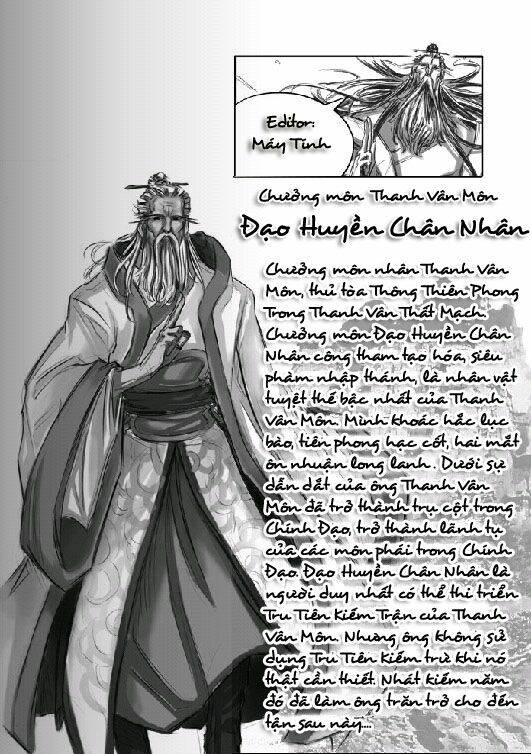 Editor:
Máy Tính
Chưởng môn Thanh Vân Môn
Đạo Huyền Chân Nhân
Chưởng môn nhân Thanh Vân
Môn, thủ tòa Thông Thiên Phong
Trong Thanh Vân Thất Mạch.
Chưởng môn Đạo Huyền Chân
Nhân công tham tạo hóa, siêu
phàm nhập thánh, là nhân vật
tuyệt thế bậc nhất của Thanh
Vân Môn. Mình khoác hắc lục
bào, tiên phong hạc cốt, hai mắt
ôn nhuận long lanh. Dưới sự
dẫn dắt của ông Thanh Vân
Môn đã trở thành trụ cột trong
Chính Đạo, trở thành lãnh tụ
của các môn phái trong Chính
Đạo. Đạo Huyền Chân Nhân là
người duy nhất có thể thi triển
Tru Tiên Kiếm Trận của Thanh
Vân Môn. Nhưng ông không sử
dụng Tru Tiên kiếm trừ khi nó
thật cần thiết. Nhát kiếm năm
đó đã làm ông trăn trở cho đến
tận sau này....